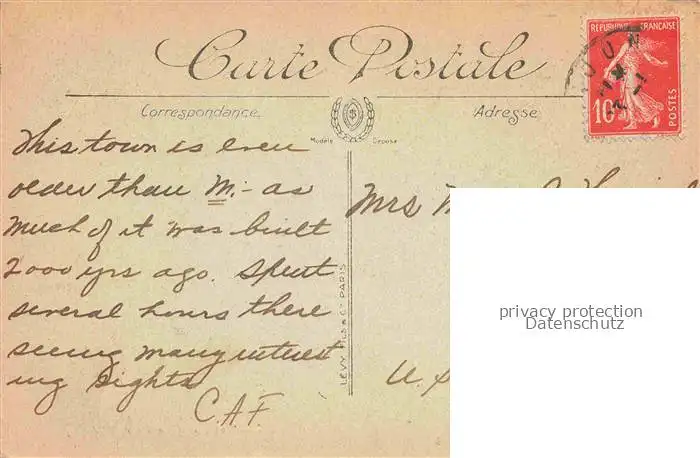 Carte Postale
REPUBLIQUE FRANÇAISE
10c
POSTES
Correspondance.
Adresse.
Modèle Déposé
This town is even
older than M. - as
much of it was built
2000 yrs ago. Spent
several hours there
seeing many interest
ing sights
C.A.F.
LEVY FILS & Cie PARIS
Mrs
U.S
privacy protection
Datenschutz